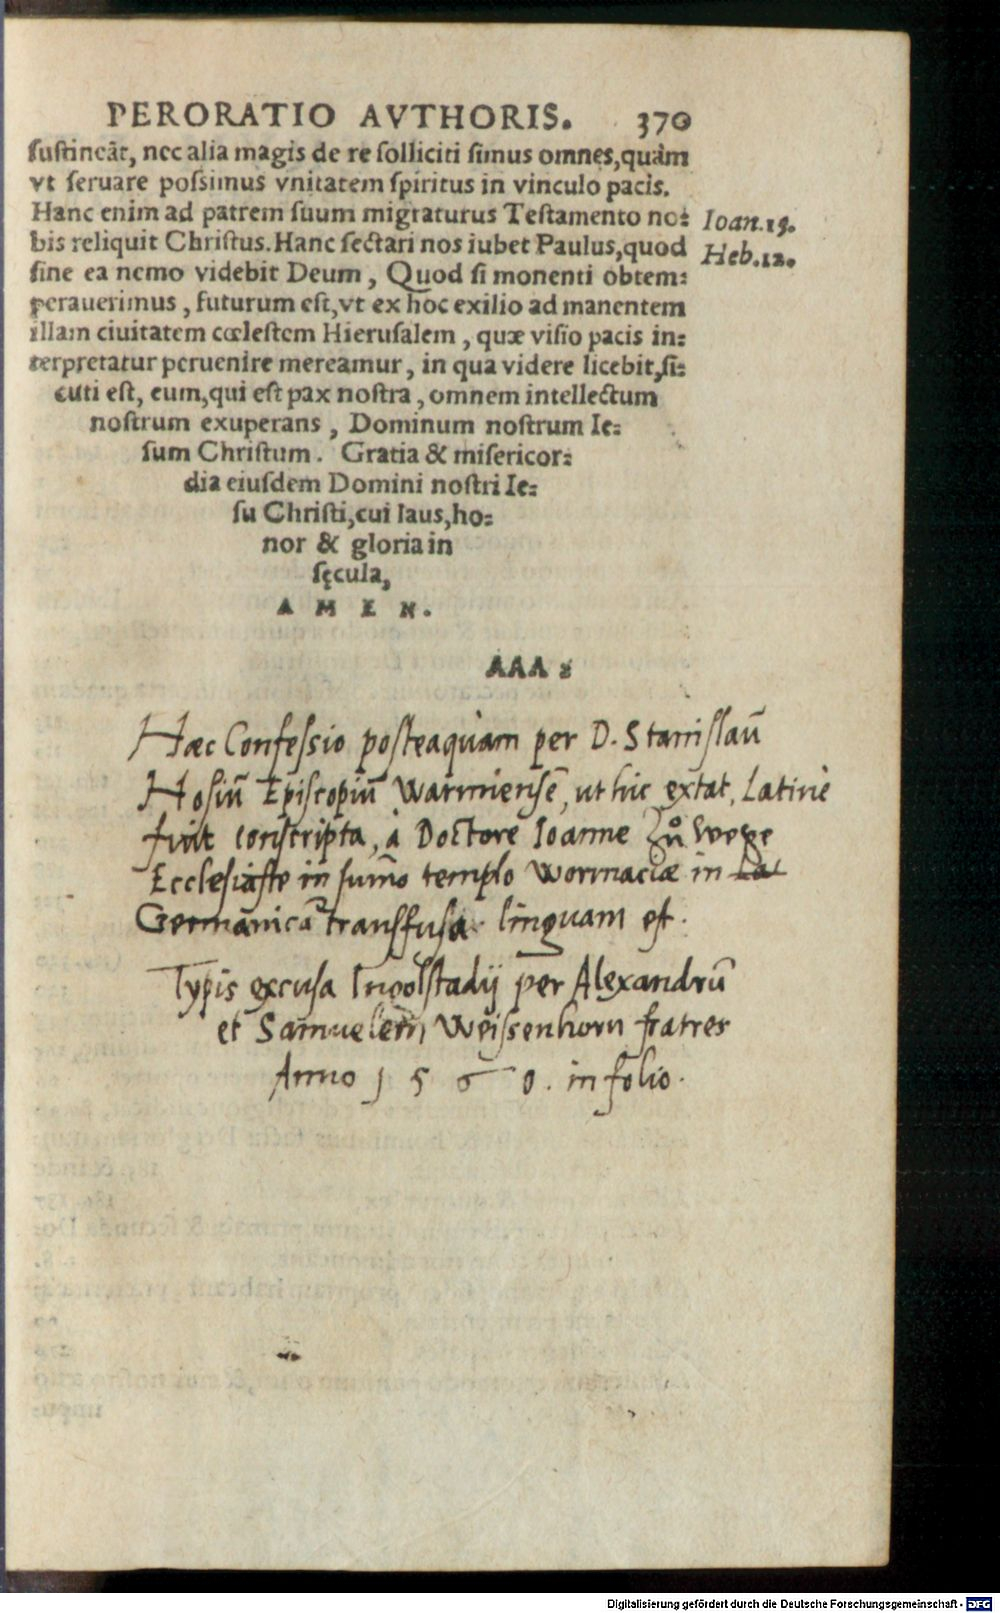 PERORATIO AVTHORIS. 370
sustineãt, nec alia magis de re solliciti simus omnes, quàm
vt seruare possimus vnitatem spiritus in vinculo pacis.
Hanc enim ad patrem suum migraturus Testamento no:
Ioan.15.
bis reliquit Christus. Hanc sectari nos iubet Paulus, quod
Heb.12.
sine ea nemo videbit Deum, Quod si monenti obtem:
perauerimus, futurum est, vt ex hoc exilio ad manentem
illam ciuitatem cœlestem Hierusalem, quæ visio pacis in:
terpretatur peruenire mereamur, in qua videre licebit, si:
cuti est, eum, qui est pax nostra, omnem intellectum
nostrum exuperans, Dominum nostrum Ie:
sum Christum. Gratia & misericor:
dia eiusdem Domini nostri Ie:
su Christi, cui laus, ho:
nor & gloria in
sęcula,
AMEN.
AAA 2
Hæc Confessio posteaquàm per D. Stanislaũ
Hosiũ Episcopiũ Warmiensẽ, ut hic extat, Latinè
fuit conscripta, à Doctore Ioanne Zů Wege
Ecclesiaste in sum̃o templo Wormaciæ in La
Germanicã transfusa linguam est.
Typis excusa Ingolstadij per Alexandrũ
et Samuelem Weissenhorn fratres
Anno 1560. in folio.
Digitalisierung gefördert durch die Deutsche Forschungsgemeinschaft - DFG